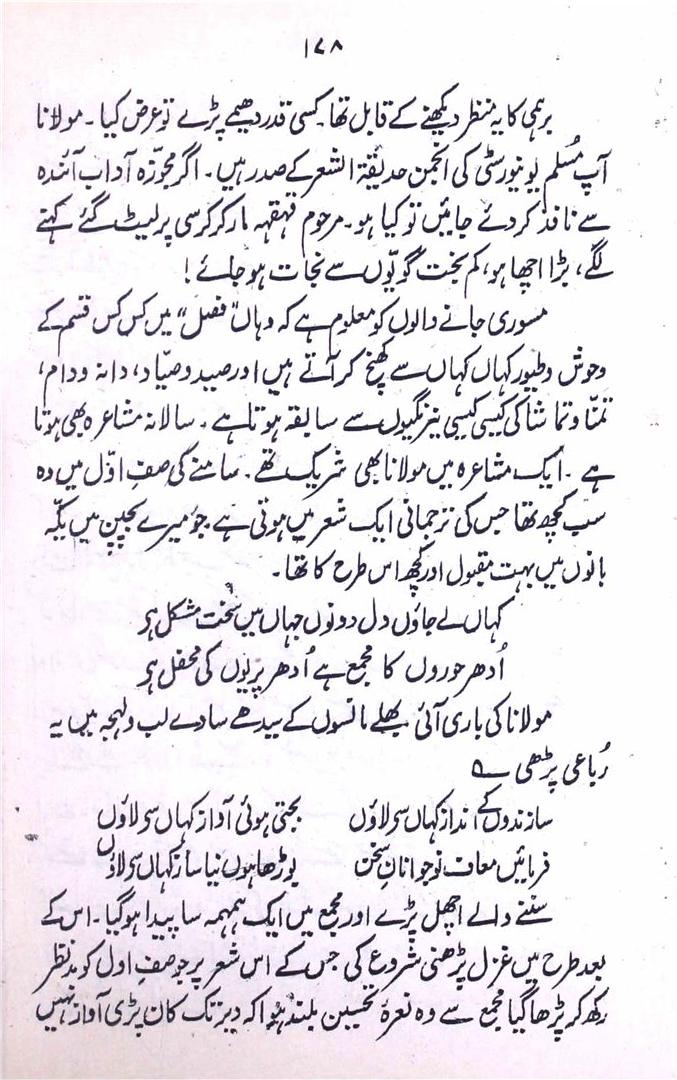 ۱۷۸
برہمی کا یہ منظر دیکھنے کے قابل تھا۔ کسی قدر دھیمے پڑے تو عرض کیا۔ مولانا
آپ مُسلم یونیورسٹی کی انجمن حدیقۃ الشعر کے صدر ہیں۔ اگر مجوّزہ آداب آئندہ
سے نافذ کر دئے جائیں تو کیا ہو۔ مرحوم قہقہہ مار کر کرسی پر لیٹ گئے کہنے
لگے، بڑا اچھا ہو، کم بخت گویّوں سے نجات ہو جائے!
مسوری جانے والوں کو معلوم ہے کہ وہاں "فصل" میں کس کس قسم کے
وحوش و طیور کہاں کہاں سے کھنچ کر آتے ہیں اور صید و صیّاد، دانہ و دام،
تمنّا و تماشا کی کیسی کیسی نیرنگیوں سے سابقہ ہوتا ہے۔ سالانہ مشاعرہ بھی ہوتا
ہے۔ ایک مشاعرہ میں مولانا بھی شریک تھے۔ سامنے کی صفِ اوّل میں وہ
سب کچھ تھا جس کی ترجمانی ایک شعر میں ہوتی ہے جو میرے بچپن میں یکّہ
بانوں میں بہت مقبول اور کچھ اس طرح کا تھا۔
کہاں لے جاؤں دل دونوں جہاں میں سخت مشکل ہو
اُدھر حوروں کا مجمع ہے اُدھر پریوں کی محفل ہو
مولانا کی باری آئی بھلے مانسوں کے سیدھے سادے لب و لہجہ میں یہ
رُباعی پڑھی ؎
سازندوں کے انداز کہاں سو لاؤں بجتی ہوئی آواز کہاں سو لاؤں
فرمائیں معاف نوجوانانِ سخن بوڑھا ہوں نیا ساز کہاں سو لاؤں
سننے والے اچھل پڑے اور مجمع میں ایک ہمہمہ سا پیدا ہو گیا۔ اس کے
بعد طرح میں غزل پڑھنی شروع کی جس کے اس شعر پر جو صفِ اول کو مدنظر
رکھ کر پڑھا گیا مجمع سے وہ نعرۂ تحسین بلند ہوا کہ دیر تک کان پڑی آواز نہیں